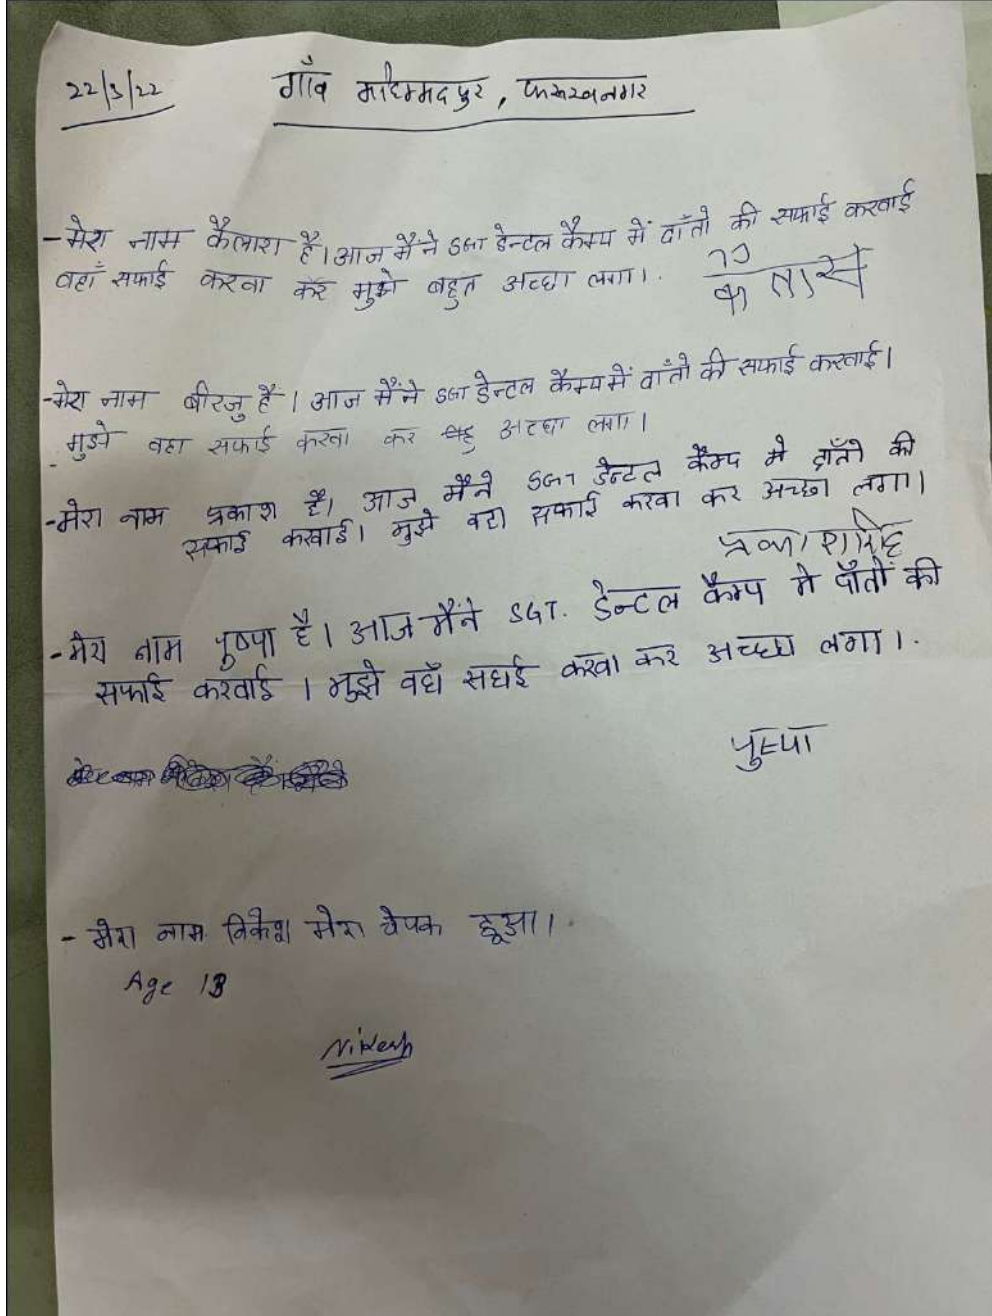 22/3/22 गाँव मोहम्मदपुर, फारूखनगर
- मेरा नाम कैलाश है। आज मैंने SGT डेन्टल कैम्प में दाँतो की सफाई करवाई
वहाँ सफाई करवा कर मुझे बहुत अच्छा लगा।
- मेरा नाम बीरजु हैं। आज मैंने SGT डेन्टल कैम्प में दांतो की सफाई करवाई।
मुझे वहा सफाई करवा कर अच्छा लगा।
- मेरा नाम प्रकाश है। आज मैंने SGT डेन्टल कैम्प मे दाँतो की
सफाई करवाई। मुझे वहा सफाई करवा कर अच्छा लगा।
- मेरा नाम पुष्पा है। आज मैंने SGT. डेन्टल कैम्प मे दाँतों की
सफाई करवाई। मुझे वहाँ सफाई करवा कर अच्छा लगा।
पुष्पा
- मेरा नाम निकेश मेरा चेपक हूआ।
Age 13
Nikesh